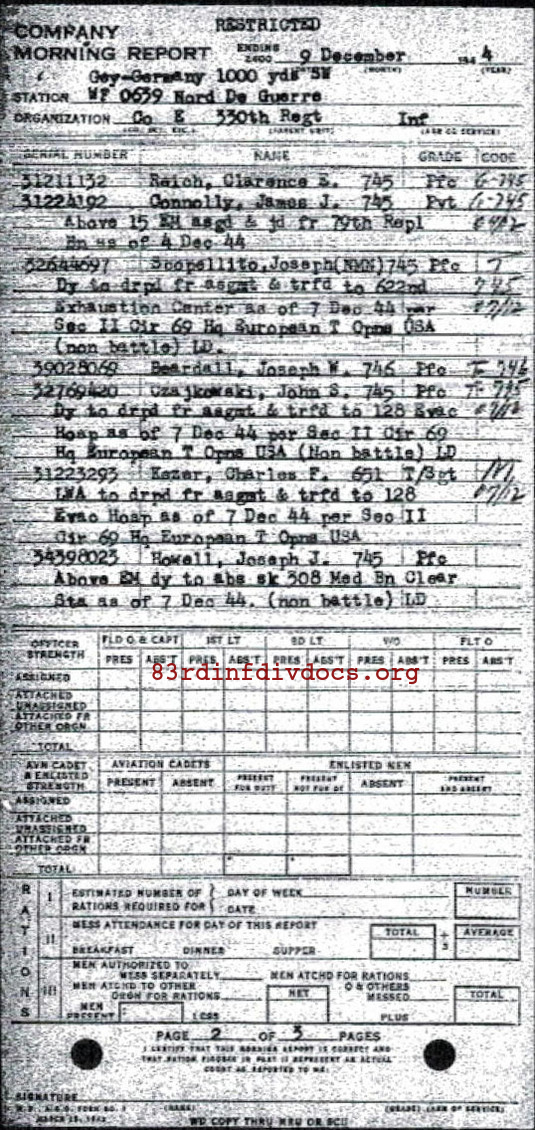 RESTRICTED
COMPANY
MORNING REPORT ENDING 2400 9 December 194 4
(MONTH) (YEAR)
Gey-Germany 1000 yds SW
STATION WF 0639 Nord De Guerre
ORGANIZATION Co E 330th Regt Inf
(PARENT UNIT) (ARM OR SERVICE)
SERIAL NUMBER NAME GRADE CODE
31211132 Reich, Clarence E. 745 Pfc
31224192 Connolly, James J. 745 Pvt
Above 15 EM asgd & jd fr 79th Repl
Bn as of 4 Dec 44
32644697 Scopellito, Joseph(NMN) 745 Pfc T
Dy to drpd fr asgmt & trfd to 622nd 745
Exhaustion Center as of 7 Dec 44 per
Sec II Cir 69 Hq European T Opns USA
(non battle) LD.
39028069 Beardall, Joseph W. 746 Pfc
32769420 Czajkowski, John S. 745 Pfc
Dy to drpd fr asgmt & trfd to 128 Evac
Hosp as of 7 Dec 44 per Sec II Cir 69
Hq European T Opns USA (Non battle) LD
31223293 Kezer, Charles F. 651 T/Sgt
LWA to drpd fr asgmt & trfd to 128
Evac Hosp as of 7 Dec 44 per Sec II
Cir 69 Hq European T Opns USA
34398023 Howell, Joseph J. 745 Pfc
Above EM dy to abs sk 308 Med Bn Clear
Sta as of 7 Dec 44. (non battle) LD
OFFICER STRENGTH FLD O & CAPT 1ST LT 2D LT WO FLT O
PRES ABS'T PRES ABS'T PRES ABS'T PRES ABS'T PRES ABS'T
ASSIGNED
83rdinfdivdocs.org
ATTACHED UNASSIGNED
ATTACHED FR OTHER ORGN
TOTAL
AVN CADET & ENLISTED STRENGTH AVIATION CADETS ENLISTED MEN
PRESENT ABSENT PRESENT FOR DUTY PRESENT NOT FOR DY ABSENT PRESENT AND ABSENT
ASSIGNED
ATTACHED UNASSIGNED
ATTACHED FR OTHER ORGN
TOTAL
RATIONS
I ESTIMATED NUMBER OF RATIONS REQUIRED FOR DAY OF WEEK NUMBER
DATE
II MESS ATTENDANCE FOR DAY OF THIS REPORT TOTAL ÷ 3 AVERAGE
BREAKFAST DINNER SUPPER
III MEN AUTHORIZED TO MESS SEPARATELY MEN ATCHD FOR RATIONS
MEN ATCHD TO OTHER ORGN FOR RATIONS NET O & OTHERS MESSED TOTAL
MEN PRESENT LESS PLUS
PAGE 2 OF 3 PAGES
I CERTIFY THAT THIS MORNING REPORT IS CORRECT AND
THAT RATION FIGURES IN PART II REPRESENT AN ACTUAL
COUNT AS REPORTED TO ME:
SIGNATURE
W.D., A.G.O. FORM NO. 1 (NAME) (GRADE) (ARM OF SERVICE)
WD COPY THRU MRU OR SCU